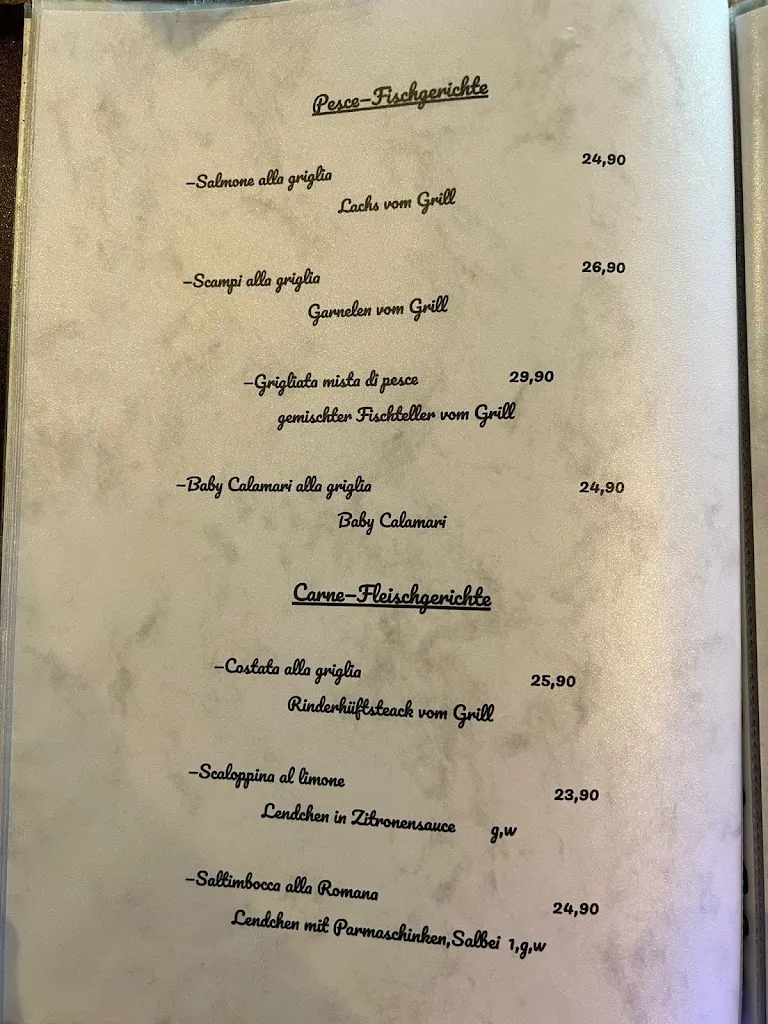 Pesce-Fischgerichte
-Salmone alla griglia 24,90
Lachs vom Grill
-Scampi alla griglia 26,90
Garnelen vom Grill
-Grigliata mista di pesce 29,90
gemischter Fischteller vom Grill
-Baby Calamari alla griglia 24,90
Baby Calamari
Carne-Fleischgerichte
-Costata alla griglia 25,90
Rinderhüftsteack vom Grill
-Scaloppina al limone 23,90
Lendchen in Zitronensauce g,w
-Saltimbocca alla Romana 24,90
Lendchen mit Parmaschinken,Salbei 1,g,w